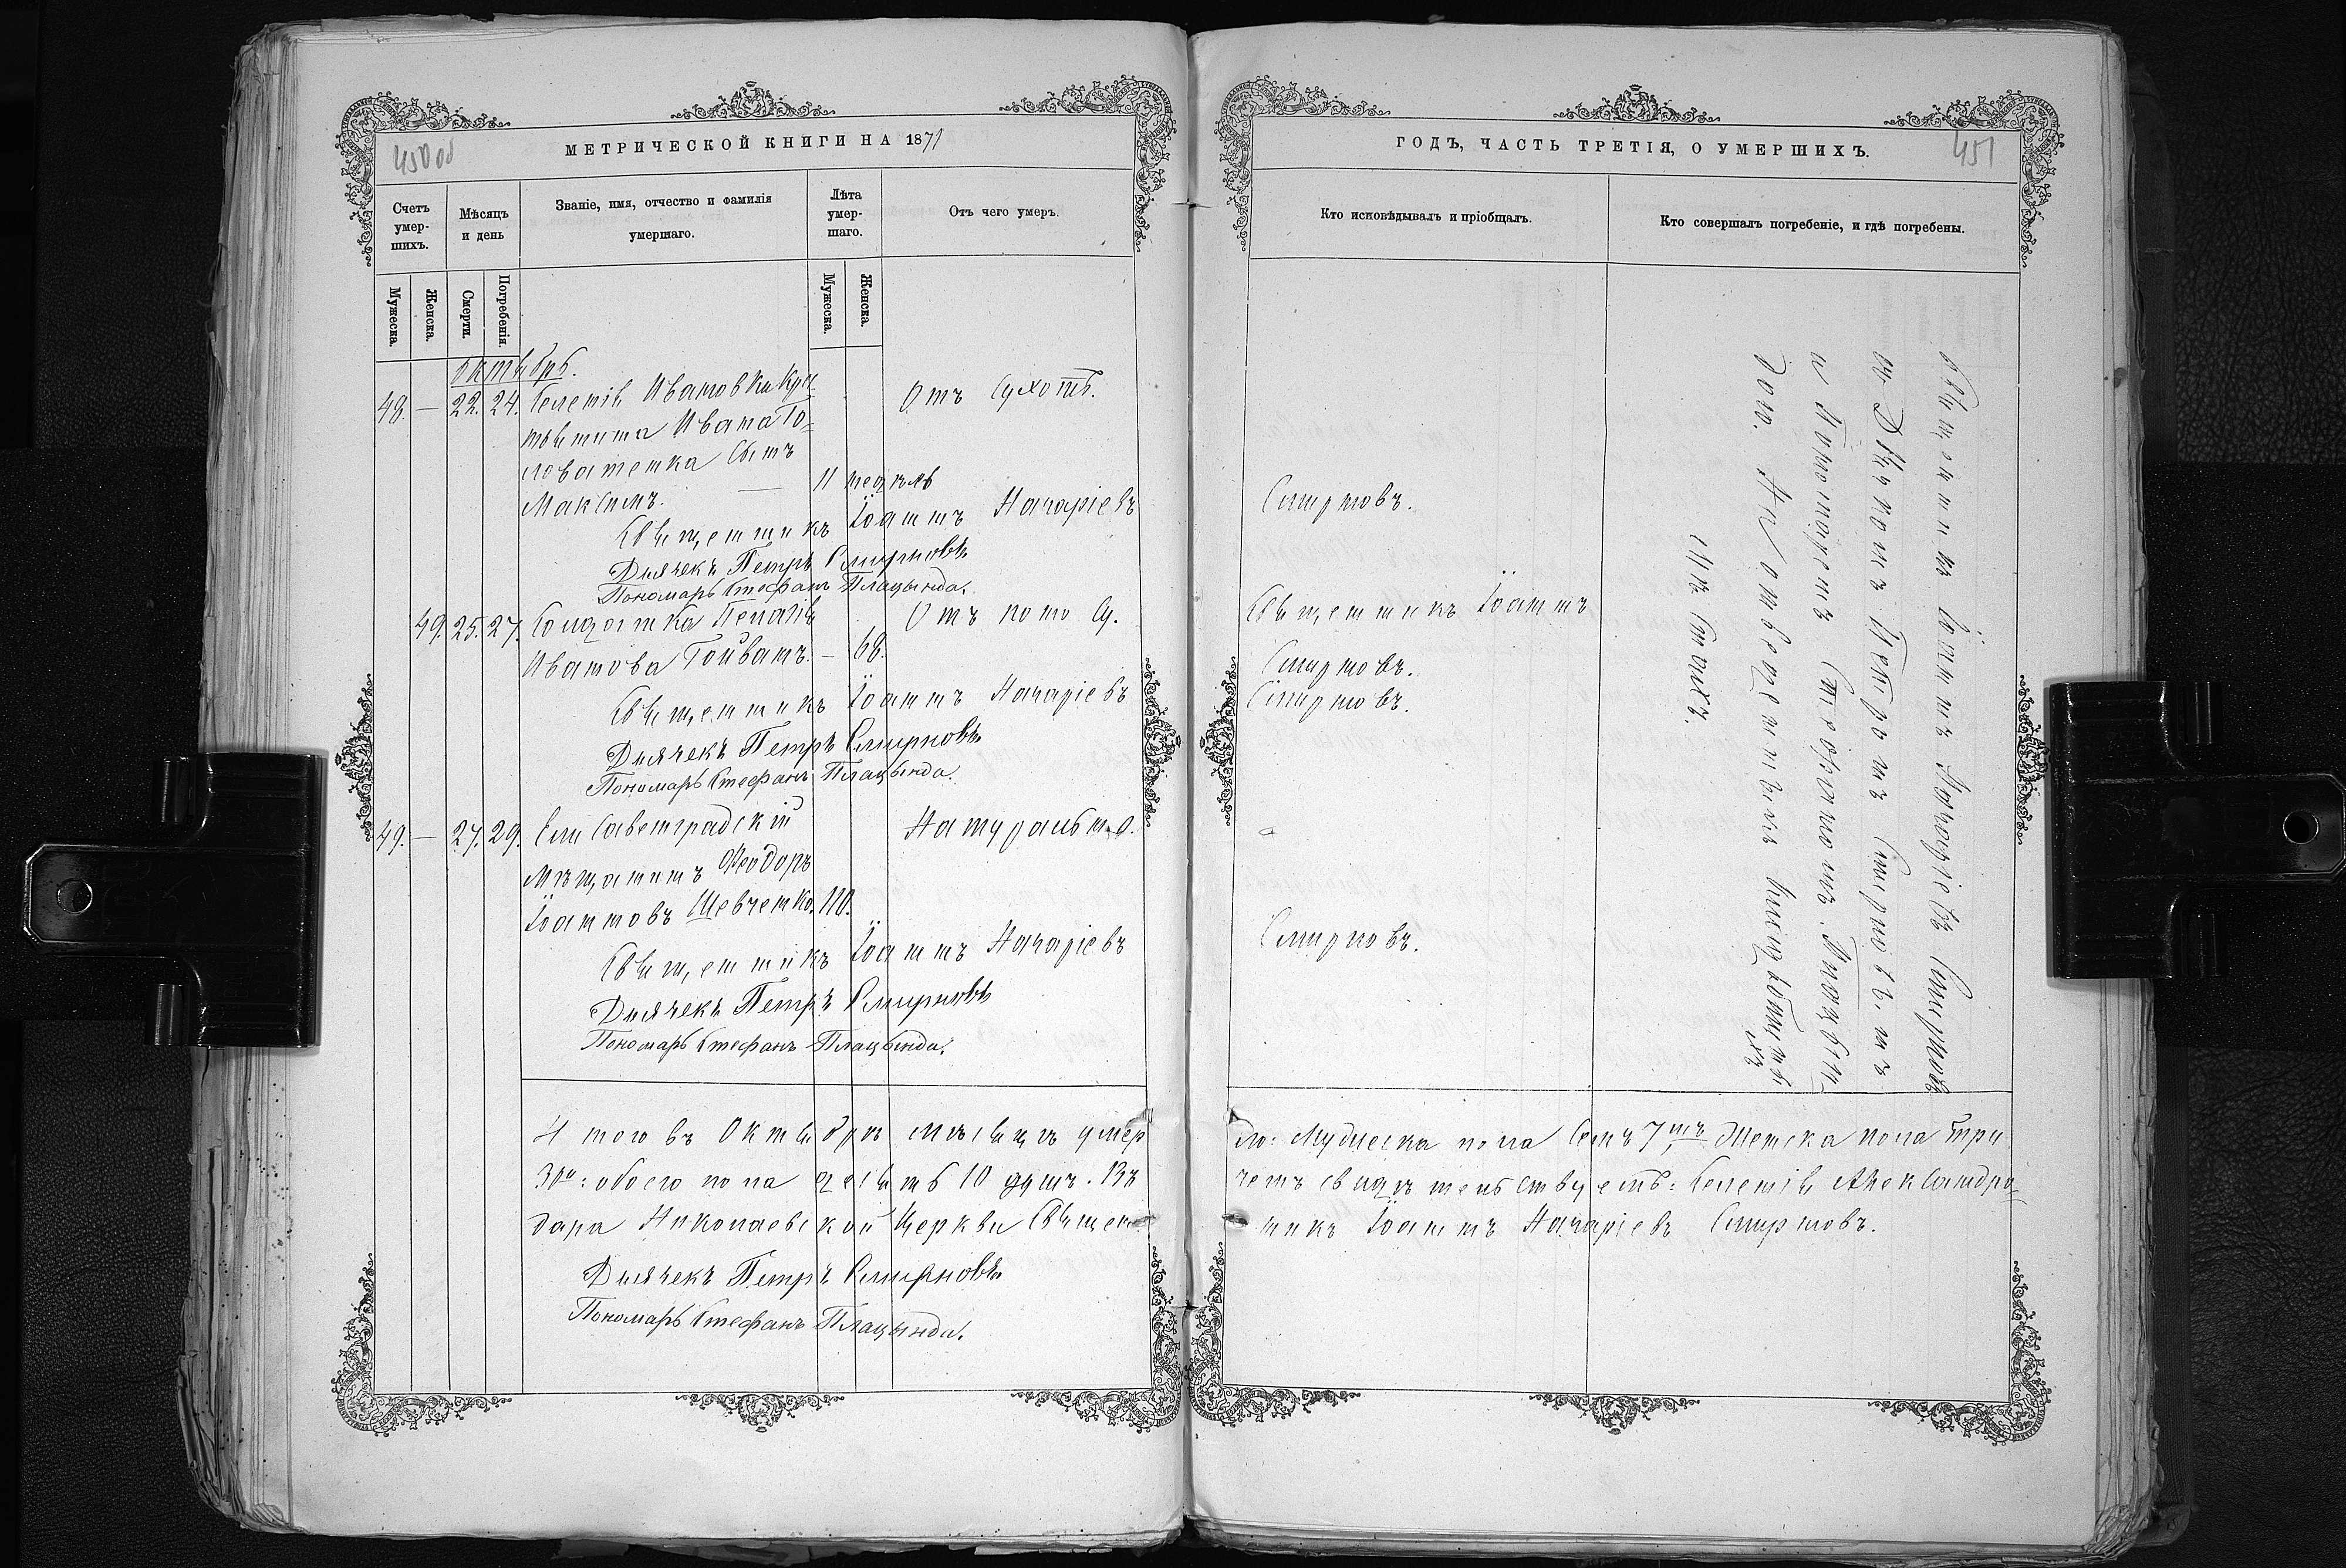 450 об
МЕТРИЧЕСКОЙ КНИГИ НА 1871
Счетъ умер-шихъ.
Мѣсяцъ и день
Званіе, имя, отчество и фамилія умершаго.
Лѣта умер-шаго.
Отъ чего умеръ.
Мужеска.
Женска.
Смерти.
Погребенія.
Мужеска.
Женска.
Октябрь.
48. — 22. 24. Селенія Ивановки Кре- Отъ Сухоты.
стьянина Ивана Го-
лованенка Сынъ
Максимъ. — 11 недѣль
Священникъ Іоаннъ Назаріевъ
Дьячекъ Петръ Смирновъ
Пономарь Стефанъ Плацында.
49. 25. 27. Солдатка Пелагія
Иванова Гойванъ. — 68.
Священникъ Іоаннъ Назаріевъ
Дьячекъ Петръ Смирновъ
Пономарь Стефанъ Плацында.
49. — 27. 29. Елисаветградскій Натурально.
Мѣщанинъ Феодоръ
Іоанновъ Шевченко. 110.
Священникъ Іоаннъ Назаріевъ
Дьячекъ Петръ Смирновъ
Пономарь Стефанъ Плацында.
Итого въ Октябрѣ мѣсяцѣ умер
3го: обоего пола десять 10 душъ. Въ
дара Николаевской Церкви Священ
Дьячекъ Петръ Смирновъ
Пономарь Стефанъ Плацында.
451
ГОДЪ, ЧАСТЬ ТРЕТІЯ, О УМЕРШИХЪ.
Кто исповѣдывалъ и пріобщалъ.
Кто совершалъ погребеніе, и гдѣ погребены.
Смирновъ.
Священникъ Іоаннъ
Смирновъ.
Смирновъ.
Смирновъ.
Священникъ Іоаннъ Назаріевъ Смирновъ
съ Дьячкомъ Петромъ Смирновымъ
и Пономаремъ Стефаномъ Плацын-
дою. На отведенномъ кладбищѣ
ло: Мужеска пола Семь 7мъ, Женска пола три
чемъ свидѣтельствуетъ: Селенія Александро-
никъ Іоаннъ Назаріевъ Смирновъ.